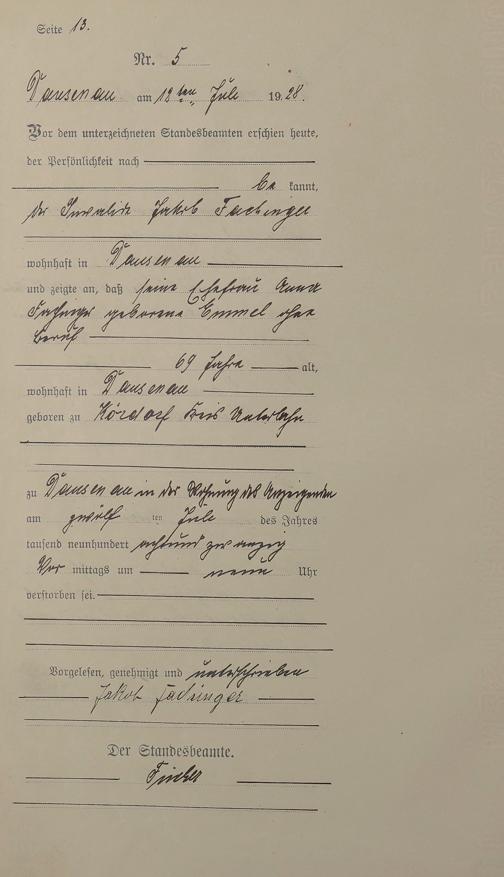 Seite 13.
Nr. 5
Dausenau am 12ten Juli 1928.
Vor dem unterzeichneten Standesbeamten erschien heute,
der Persönlichkeit nach
be kannt,
der Invalide Jakob Fachinger
wohnhaft in Dausenau
und zeigte an, daß seine Ehefrau Anna
Fachinger geborene Emmel ohne
Beruf
69 Jahre alt,
wohnhaft in Dausenau
geboren zu Kördorf Kreis Unterlahn
zu Dausenau in der Wohnung des Anzeigenden
am zwölf ten Juli des Jahres
tausend neunhundert achtund zwanzig
Vor mittags um neun Uhr
verstorben sei.
Vorgelesen, genehmigt und unterschrieben
Jakob Fachinger
Der Standesbeamte.